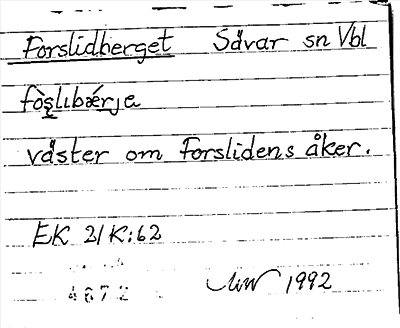 Forslidberget Sävar sn Vbl
fòs̥lıbǽrja
väster om Forslidens åker.
EK 21K:62
4872 1992